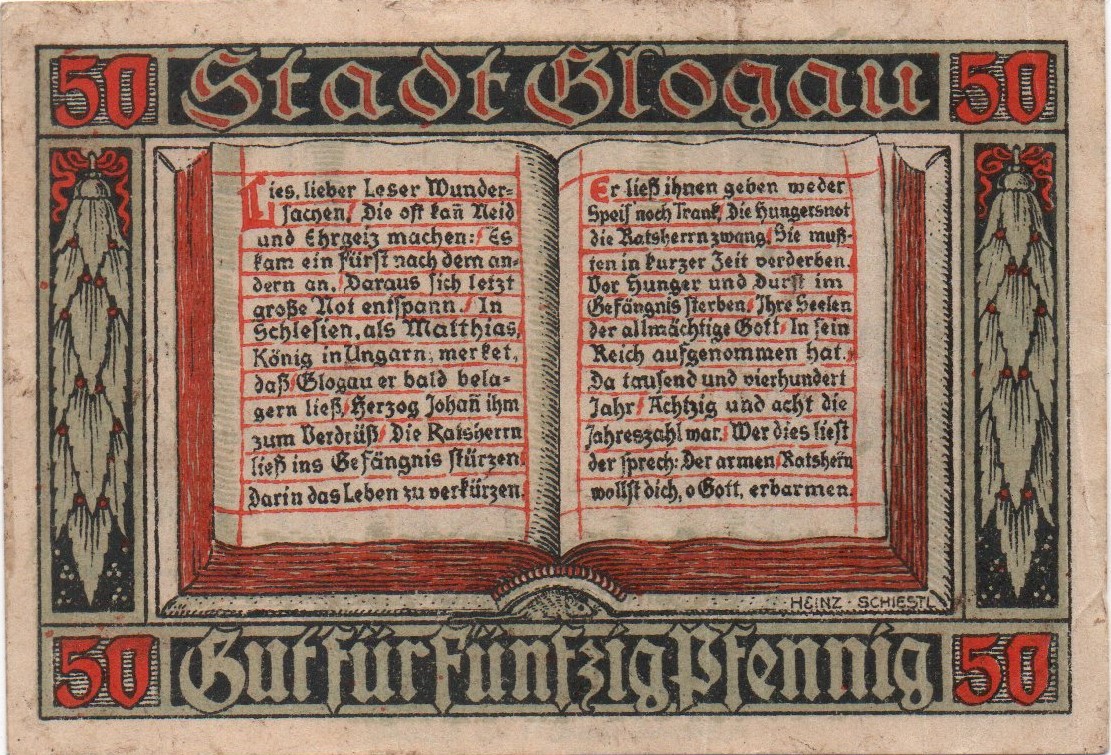 50 Stadt Glogau 50
Lies, lieber Leser Wunder=
sachen, Die oft kañ Neid
und Ehrgeiz machen:/Es
kam ein Fürst nach dem an=
dern an,/Daraus sich letzt
große Not entspann./In
Schlesien, als Matthias,
König in Ungarn, merket,
daß/Glogau er bald bela=
gern ließ,/Herzog Johañ ihm
zum Verdrüß/Die Ratsherrn
ließ ins Gefängnis stürzen
Darin das Leben zu verkürzen.
Er ließ ihnen geben weder
Speis noch Trank/Die Hungersnot
die Ratsherrn zwang/Sie muß=
ten in kurzer Zeit verderben,
Vor Hunger und Durst im
Gefängnis sterben/Ihre Seelen
der allmächtige Gott/In sein
Reich aufgenommen hat./
Da tausend und vierhundert
Jahr/Achtzig und acht die
Jahreszahl war./Wer dies liest
der sprech: Der armen Ratsherñ
wollst dich, o Gott, erbarmen.
HEINZ · SCHIESTL
50 Gut für fünfzig Pfennig 50